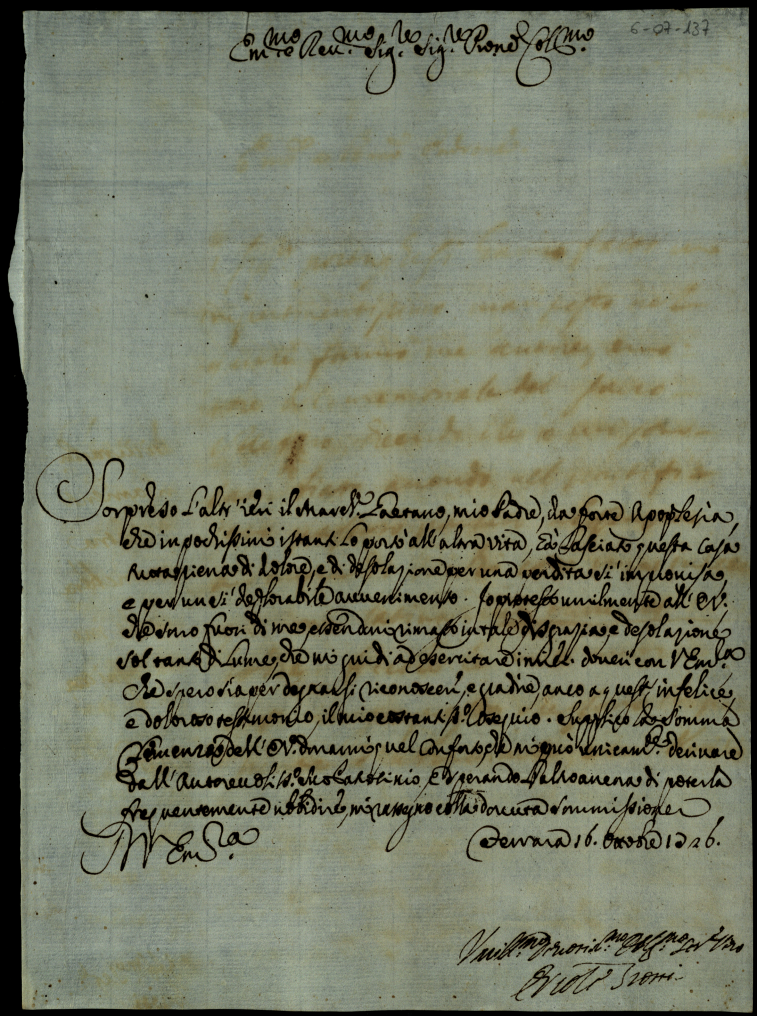 6-07-137
Em.mo e Rev.mo Sig.re Sig.re Prone Coll.mo
Sorpreso l'altr'ieri il March. Gaetano, mio Padre, da forte Apoplesia,
che in pochissimi istanti lo portò all'altra vita, hà lasciato questa Casa
tutta piena di dolore, e di desolazione per una perdita sì improvisa,
e per un sì deplorabile avvenimento. Io protesto umilmente all' E.V.
che sono fuori di me, essendomi rimasto in tale disgrazia, e desolazione
sol tanto di lume, che mi guidi ad esercitare i miei doveri con V. Em.za
che spero sia per degnarsi riconoscerli, e gradire anco a questi infelice,
e doloroso testimonio, il mio costantis.mo ossequio. Supplico la Somma
Clemenza dell' E.V. donarmi quel conforto, che mi può unicam.te derivare
dall' Autorevolis.mo suo Patrocinio, e sperando l'alto onore di poterla
frequentemente ubbidire, mi rassegno colla dovuta sommissione
Di V. Em.za
Ferrara 16. Ottobre 1726.
Umill.mo Devotis.mo Oblig.mo Ser.re Vero